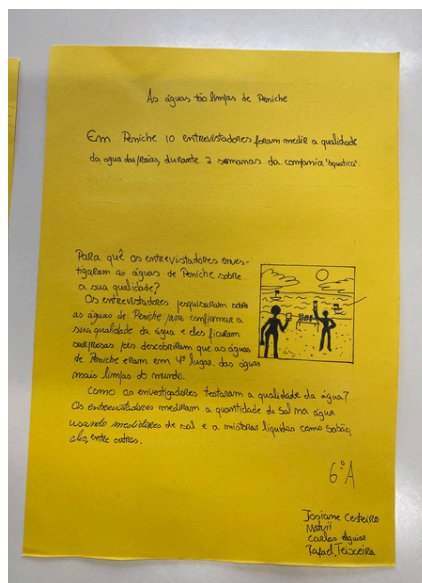 As águas tão limpas de Peniche
Em Peniche 10 entrevistadores foram medir a qualidade
da agua das praias, durante 2 semanas da companhia "aquatica".
Para quê os entrevistadores enves-
tigaram as águas de Peniche sobre
a sua qualidade?
Os entrevistadores pesquisaram sobre
as águas de Peniche para confirmar a
sua qualidade da água e eles ficaram
surpresos pois descobriram que as águas
de Peniche eram em 4º lugar das águas
mais limpas do mundo.
Como os envestigadores testaram a qualidade da água?
Os entrevistadores mediram a quantidade de sal na água
usando medidores de sal e a misturar líquidos como sabão,
entre outros.
6ºA
Josiane Cesteiro
Carlos Aguiar
Rafael Teixeira